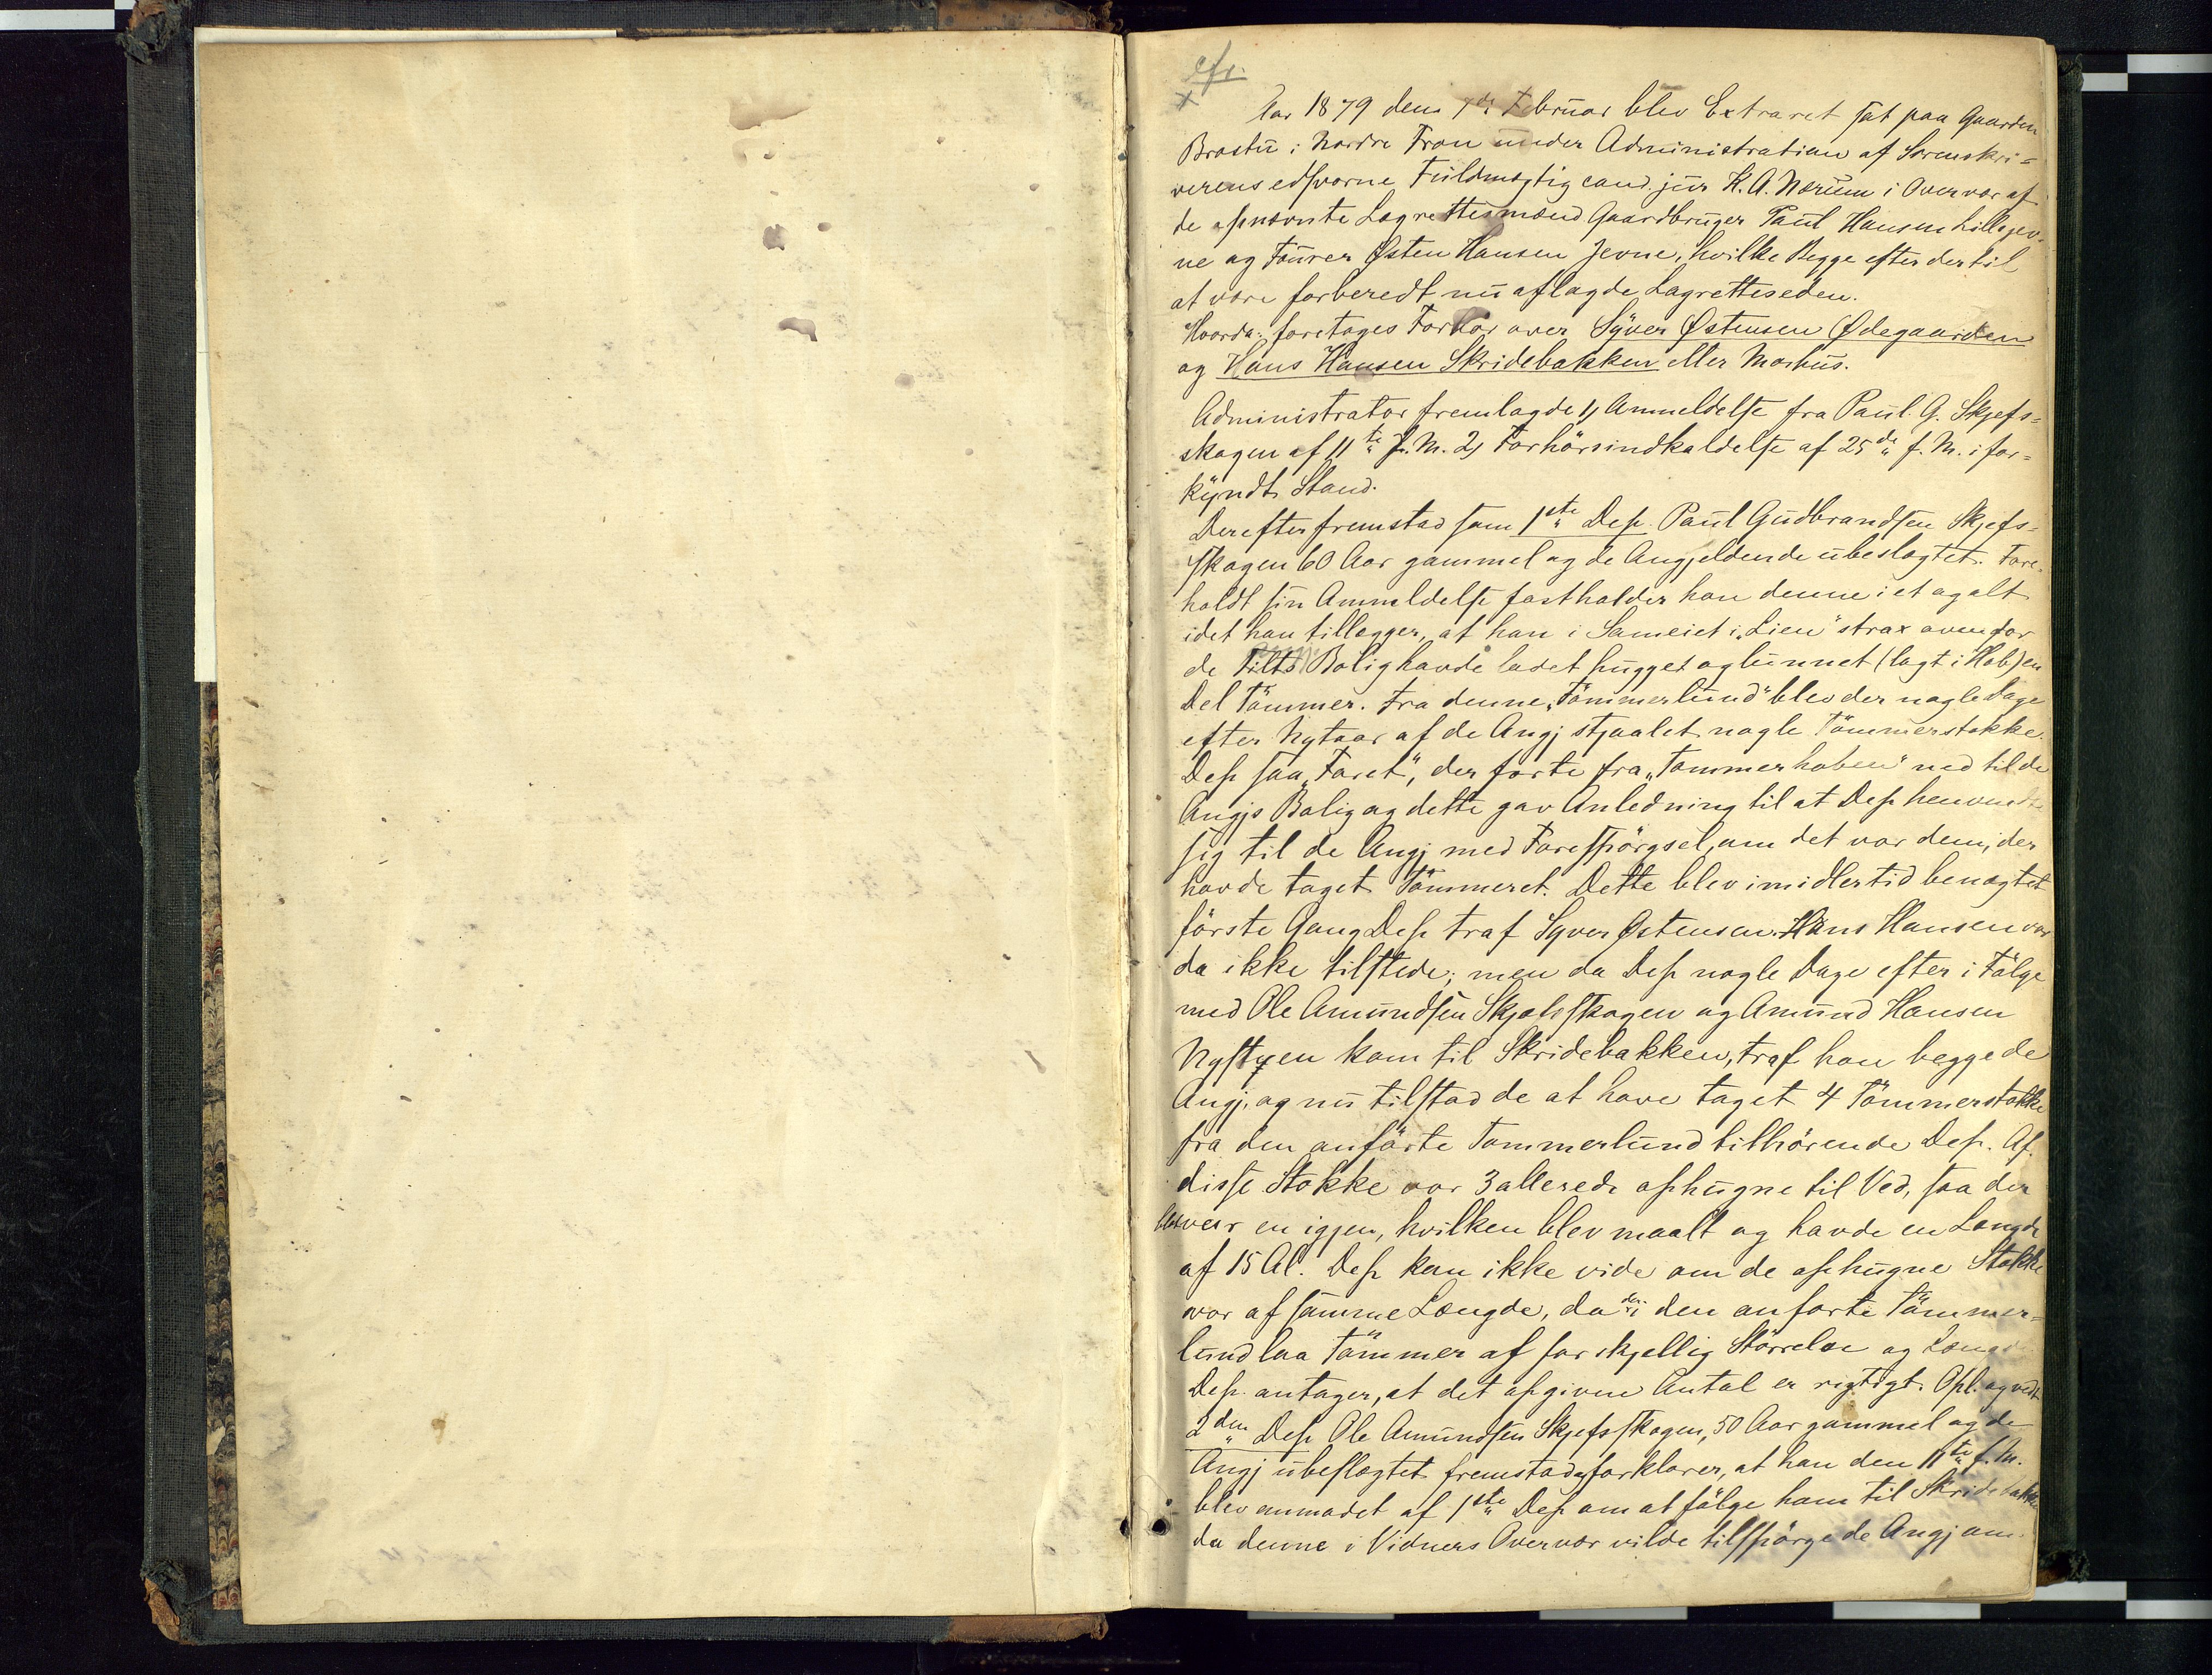 cfr.
x
Aar 1879 den 7de Februar blev Extraret sat paa Gaarden
Brostu i Nordre Fron under Administration af Sorenskri=
verens edsvorne Fuldmægtig cand. jur K. A. Nærum i Overvær af
de opnævnte Lagrettesmænd Gaardbruger Paul Hansen Lillejev-
ne og Fourer Østen Hansen Jevne, hvilke Begge efter dertil
at være forberedt nu aflagde Lagretteseden.
Hvorda: foretages Forhør over Syver Østensen Ødegaarden
og Hans Hansen Skridebakken eller Morhus.
Administrator fremlagde 1) Anmeldelse fra Paul G. Skjefs=
skogen af 11te f. M. 2) Forhörsindkaldelse af 25de f. M. i for=
kyndt Stand.
Derefter fremstod som 1ste Dep. Paul Gudbrandsen Skjefs=
skogen 60 Aar gammel og de Angjeldende ubeslægtet. Fore-
holdt sin Anmeldelse fastholder han denne i et og alt
idet han tillægger, at han i Sameiet i „Lien" strax ovenfor
de Tilts Bolig havde ladet hugget og lunnet (lagt i Hob) en
Del Tömmer. Fra denne „Tömmerlund" blev der nogle Dage
efter Nytaar af de Angj stjaalet nogle Tömmerstokke.
Dep saa „Faret", der førte fra „Tømmerhoben" ned til de
Angjs Bolig og dette gav Anledning til at Dep henvendte
sig til de Angj med Forespörgsel, om det var dem, der
havde taget Tömmeret. Dette blev imidlertid benægtet
förste Gang Dep traf Syver Østensen. Hans Hansen var
da ikke tilstede; men da Dep nogle Dage efter i Fölge
med Ole Amundsen Skjefsskogen og Amund Hansen
Nystuen kom til Skridebakken, traf han begge de
Angj. og nu tilstod de at have taget 4 Tömmerstokke
fra den anförte Tømmerlund tilhörende Dep. Af
disse Stokke var 3 allerede ophugne til Ved, saa der
blot var en igjen, hvilken blev maalt og havde en Længde
af 15 Al. Dep kan ikke vide om de ophugne Stokke
var af samme Længde, da der i den anførte Tömmer=
lund laa Tömmer af forskjellig Störrelse og Længde
Dep. antager, at det opgivne Antal er rigtigt. Opl. og vedt
2den Dep Ole Amundsen Skjefsskogen, 50 Aar gammel og de
Angj ubeslægtet fremstod og forklarer, at han den 11te f. M.
blev anmodet af 1ste Dep om at fölge ham til Skridebakken
da denne i Vidners Overvær vilde tilspörge de Angj om